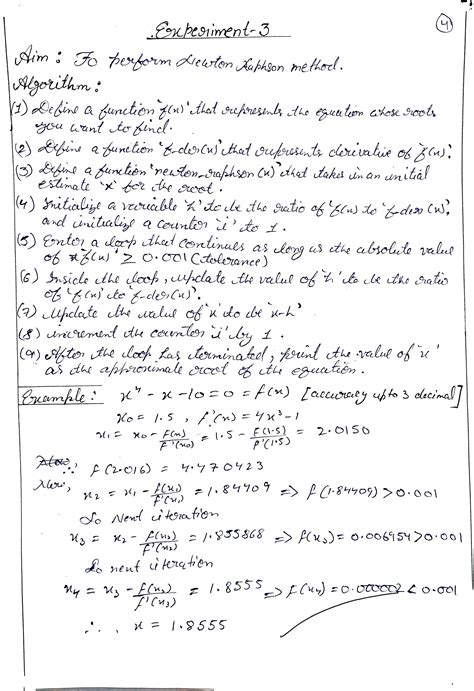 4
Experiment-3
Aim: To perform Newton Raphson method.
Algorithm:
(1) Define a function 'f(x)' that represents the equation whose roots
you want to find.
(2) Define a function 'f-der(x)' that represents derivative of 'f(x)'.
(3) Define a function 'newton_raphson(x)' that takes in an initial
estimate 'x' for the root.
(4) Initialize a variable 'h' to be the ratio of 'f(x)' to 'f-der(x)'.
and initialize a counter 'i' to 1.
(5) Enter a loop that continues as long as the absolute value
of x f(x) ≥ 0.001 (tolerance)
(6) Inside the loop, update the value of 'h' to be the ratio
of 'f(x)' to f-der(x)'.
(7) Update the value of 'x' to be 'x-h'
(8) increment the counter 'i' by 1.
(9) After the loop has terminated, print the value of 'x'
as the approximate root of the equation.
Example: x⁴ - x - 10 = 0 = f(x) [accuracy upto 3 decimal]
x0 = 1.5, f'(x) = 4x³-1
x1 = x0 - f(x0)/f'(x0) = 1.5 - f(1.5)/f'(1.5) = 2.0150
∴ f(2.016) = 4.470423
Now, x2 = x1 - f(x1)/f'(x1) = 1.84409 => f(1.84409) > 0.001
So Next iteration
x3 = x2 - f(x2)/f'(x2) = 1.855868 => f(x3) = 0.006954 > 0.001
So next iteration
x4 = x3 - f(x3)/f'(x3) = 1.8555 => f(x4) = 0.000002 < 0.001
∴ x = 1.8555